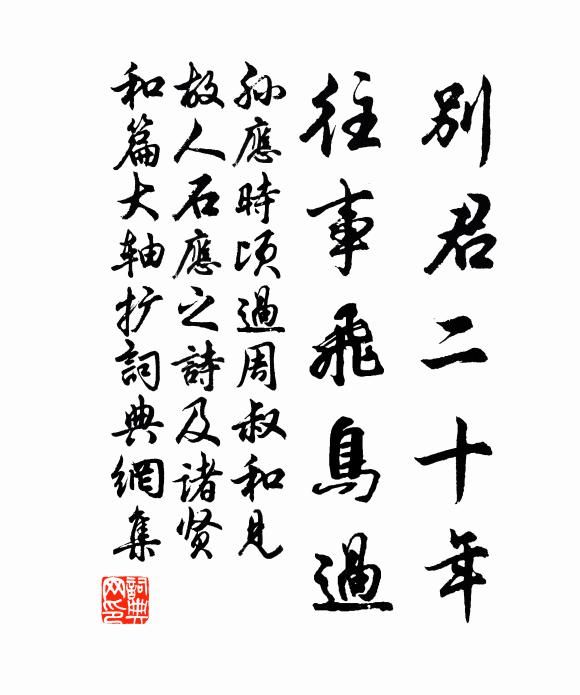 別君二十年
往事飛鳥過
孙應時頃過周叔和見
故人石應之詩及诸贤
和篇大轴扩詞典網集
詞典網印